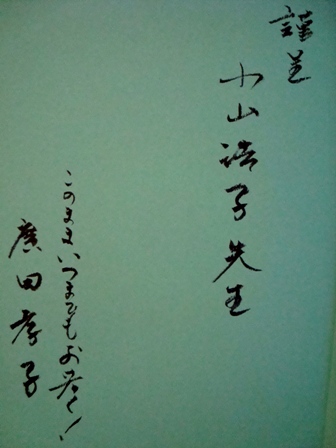 謹呈
小山浩子先生
このままいつまでもお若く!
廣田孝子